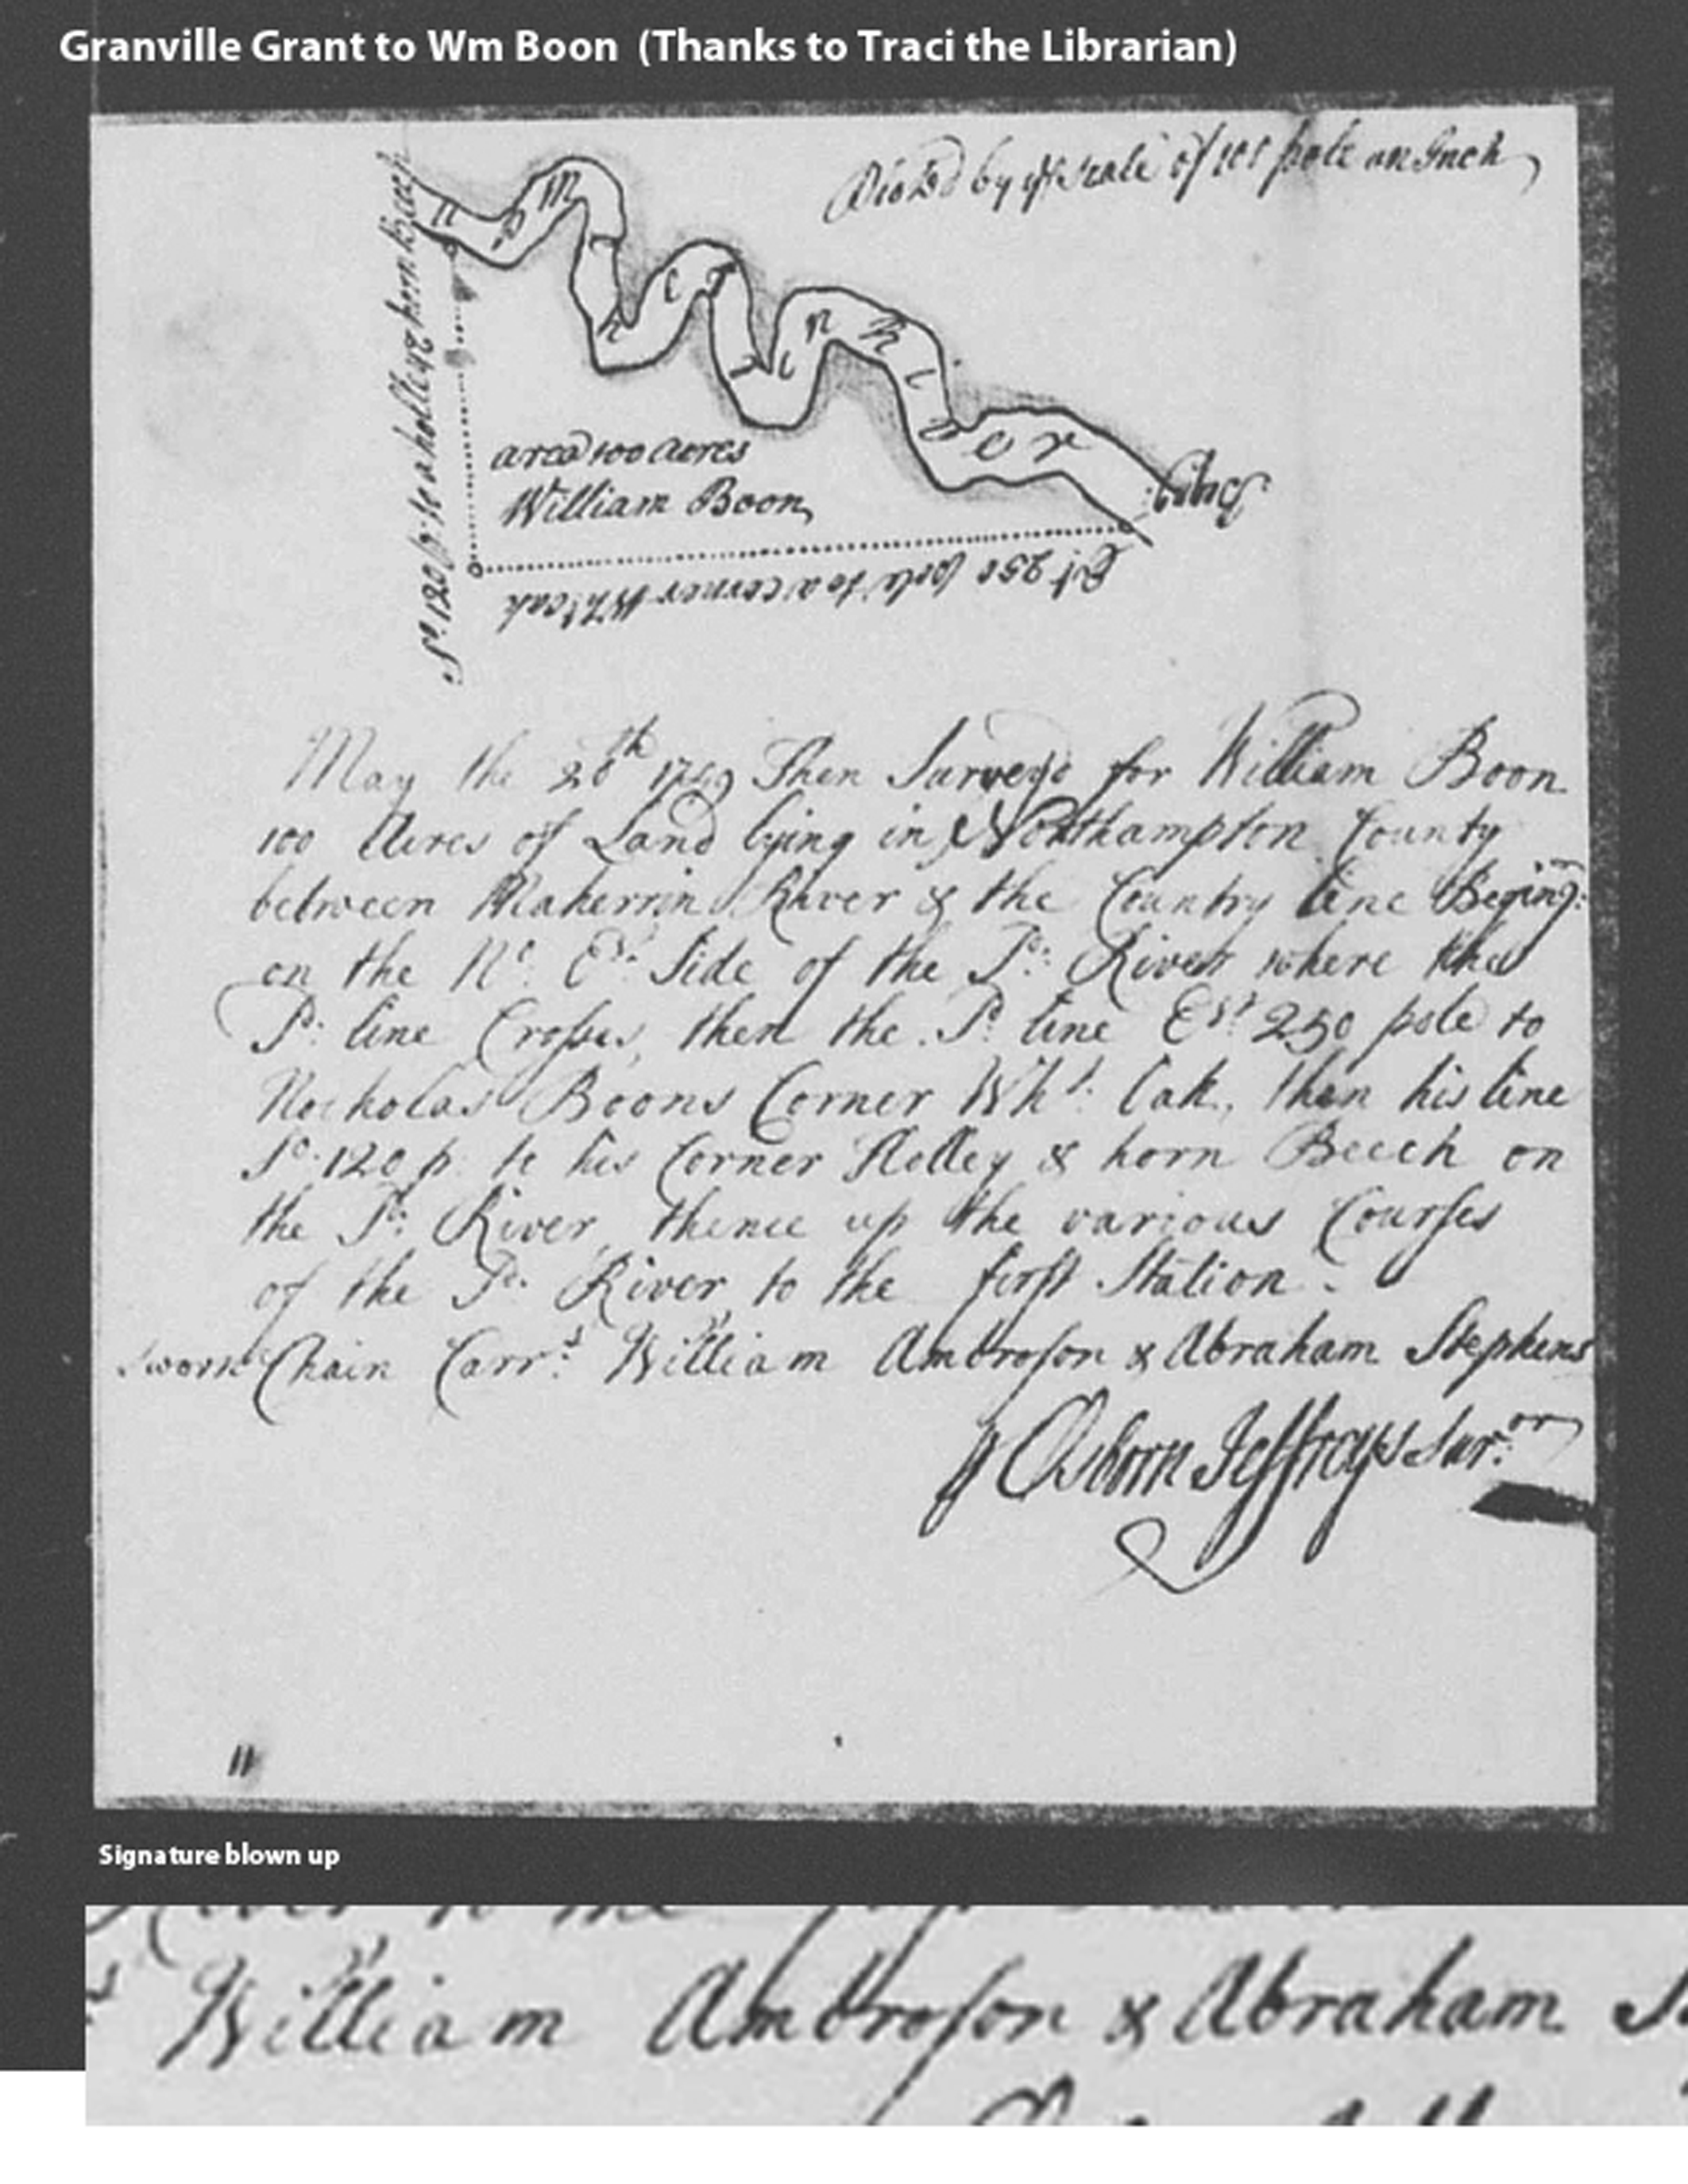 Granville Grant to Wm Boon (Thanks to Traci the Librarian)
by ye Scale of 100 pole an Inch
Maherrin River
area 100 acres
William Boon
Begg
Et 250 pole to a corner Wht oak
So. 120 p. to a holley & horn Beech
May the 20th Then Surveyd for William Boon
100 Acres of Land lying in Northampton County
between Maherrin River & the Country line Beginng:
on the No. Est. Side of the Sd. River where the
Sd. line Crosses, then the Sd. line Est. 250 pole to
Nocholas Boons Corner Wht. Oak, then his line
So. 120 p. to his Corner Holley & horn Beech on
the Sd. River, thence up the various Courses
of the Sd. River to the first Station
Sworn Chain Carrs. William Ambroson & Abraham Stephens
p Osborn Jeffreys Suror.
11
Signature blown up
William Ambroson & Abraham